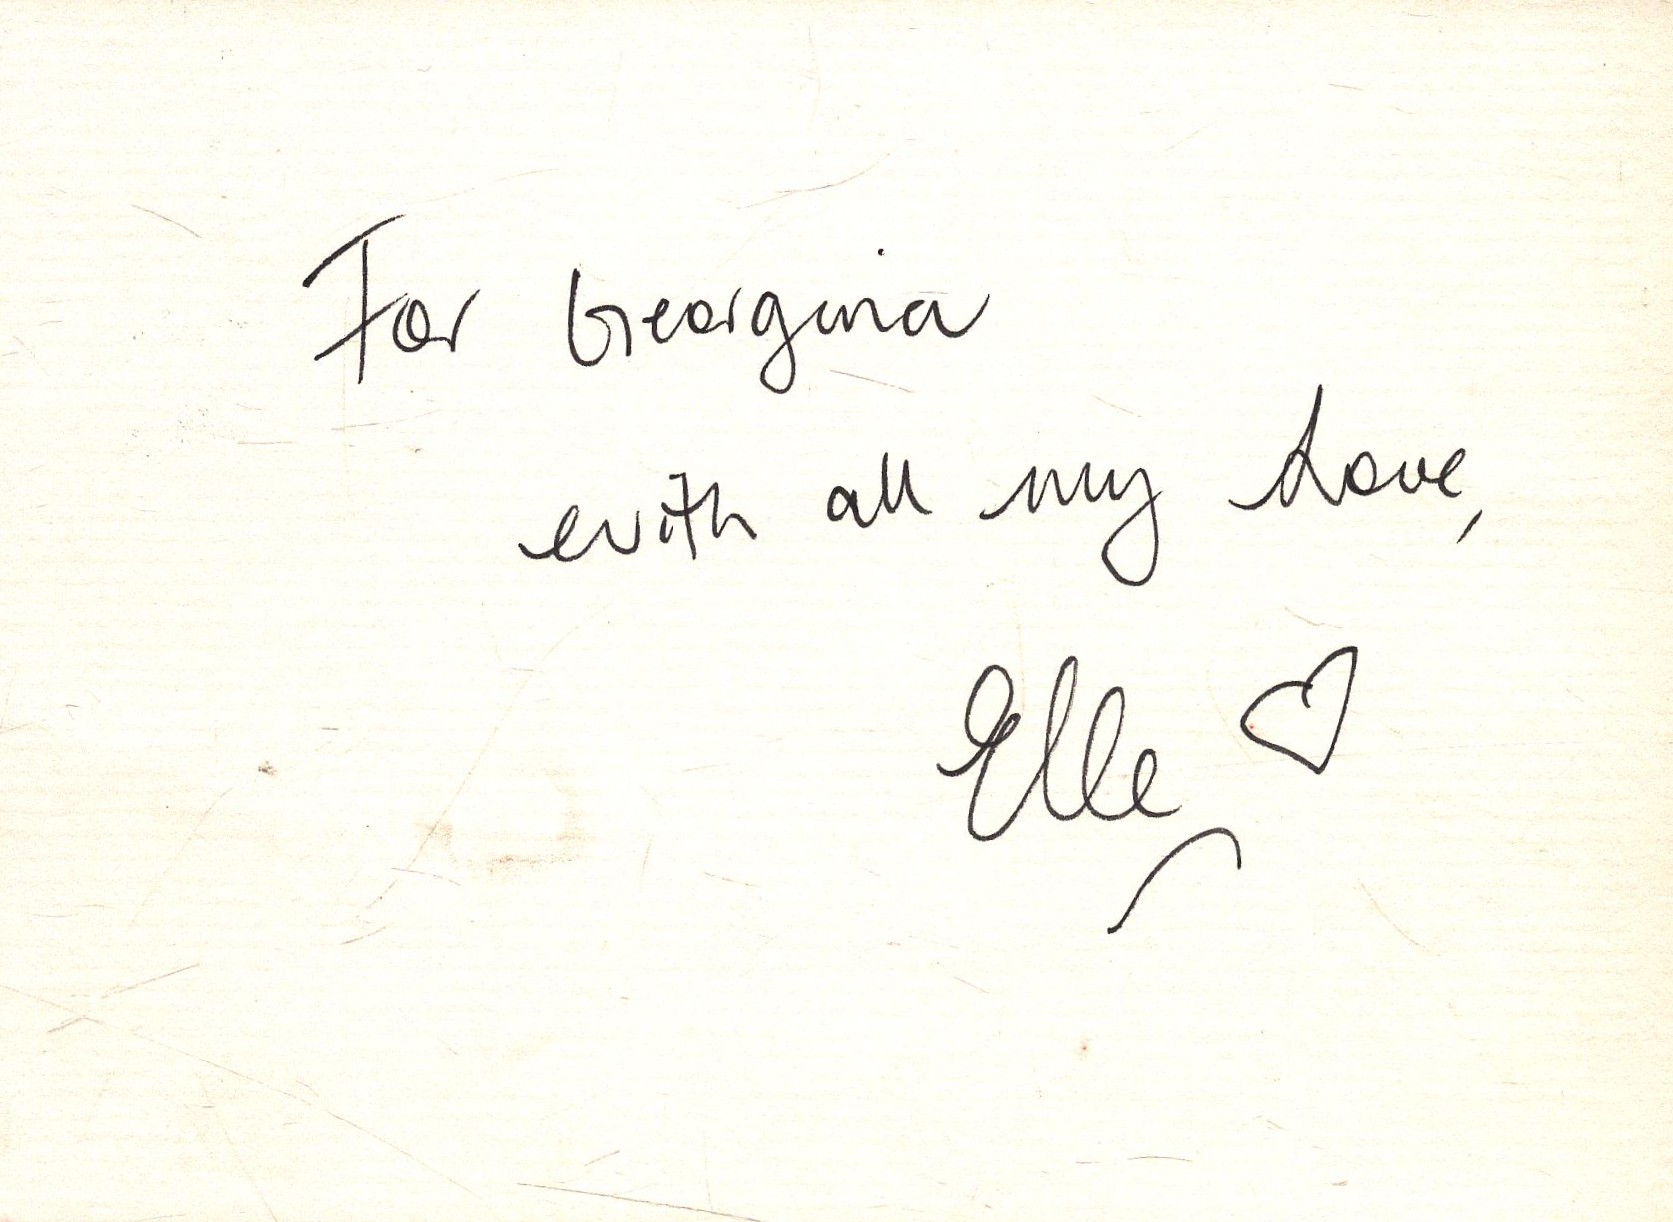 For Georgina
with all my Love,
Elle ♡